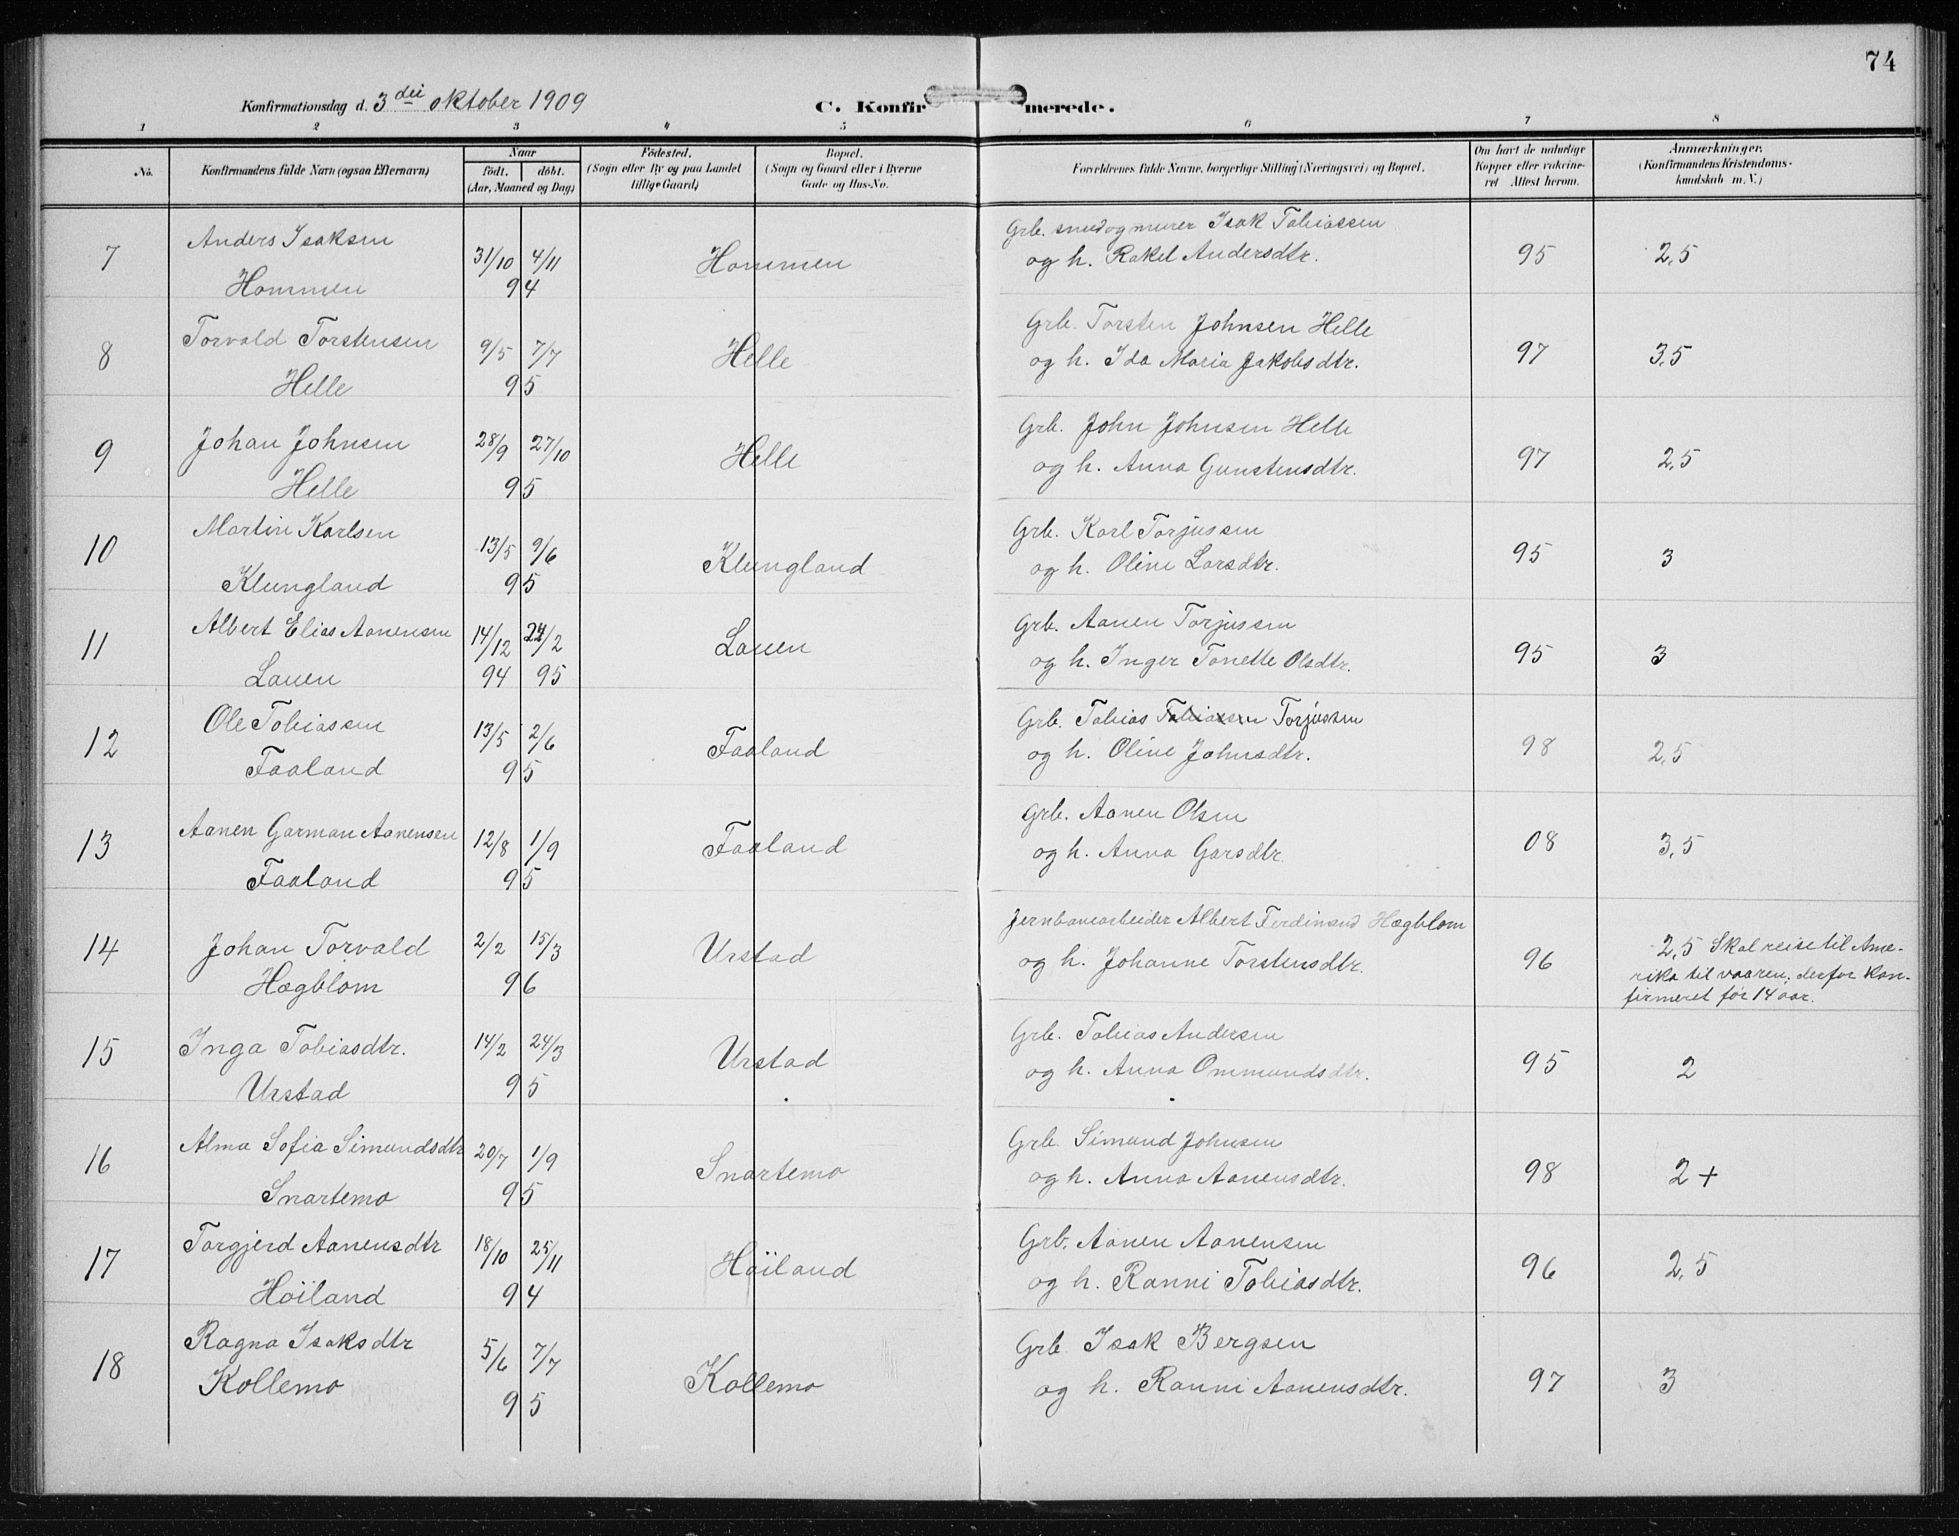 74
Konfirmationsdag d. 3die oktober 1909
C. Konfirmerede.
1 2 3 4 5 6 7 8
No.
Konfirmandens fulde Navn (ogsaa Efternavn)
Naar
födt. döbt.
(Aar, Maaned og Dag)
Födested.
(Sogn eller By og paa Landet
tillige Gaard)
Bopæl.
(Sogn og Gaard eller i Byerne
Gade og Hus-No.
Forældrenes fulde Navne, borgerlige Stilling (Næringsvei) og Bopæl.
Om havt de naturlige
Kopper eller vakcine-
ret Attest herom.
Anmærkninger.
(Konfirmandens Kristendoms-
kundskab m. V.)
7 Anders Isaksen 31/10 4/11 Hommen Grb. smed og murer Isak Tobiassen 95 2,5
Hommen 94 og h. Rakel Andersdtr.
8 Torvald Torstensen 9/5 7/7 Helle Grb. Torsten Johnsen Helle 97 3,5
Helle 95 og h. Ida Maria Jakobsdtr.
9 Johan Johnsen 28/9 27/10 Helle Grb. John Johnsen Helle 97 2,5
Helle 95 og h. Anna Gunstensdtr.
10 Martin Karlsen 13/5 9/6 Klungland Grb. Karl Torjussen 95 3
Klungland 95 og h. Oline Larsdtr.
11 Albert Elias Aanensen 14/12 24/2 Lauen Grb. Aanen Torjussen 95 3
Lauen 94 95 og h. Inger Tonette Olsdtr.
12 Ole Tobiassen 13/5 2/6 Faaland Grb. Tobias Tobiassen Torjussen 98 2,5
Faaland 95 og h. Oline Johnsdtr.
13 Aanen Garman Aanensen 12/8 1/9 Faaland Grb. Aanen Olsen 08 3,5
Faaland 95 og h. Anna Garsdtr.
14 Johan Torvald 2/2 15/3 Urstad Jernbanearbeider Albert Ferdinand Hægblom 96 2,5 Skal reise til Ame-
Hægblom 96 og h. Johanne Torstensdtr. rika til vaaren; derfor kon-
firmeret før 14 aar.
15 Inga Tobiasdtr. 14/2 24/3 Urstad Grb. Tobias Andersen 95 2
Urstad 95 og h. Anna Ommundsdtr.
16 Alma Sofia Simundsdtr 20/7 1/9 Snartemo Grb. Simund Johnsen 98 2+
Snartemo 95 og h. Anna Aanensdtr.
17 Torgjerd Aanensdtr 18/10 25/11 Höiland Grb. Aanen Aanensen 96 2,5
Höiland 94 og h. Ranni Tobiasdtr.
18 Ragna Isaksdtr 5/6 7/7 Kollemo Grb. Isak Bergsen 97 3
Kollemo 95 og h. Ranni Aanensdtr.